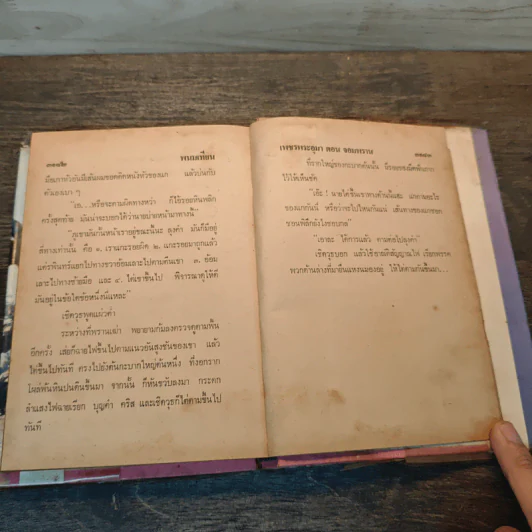 ๑๑๘๒ พนมเทียน
มือเกาหัวอันมีเส้นผมขอดติดหนังหัวของแก แล้วบ่นกับ
ตัวเองเบา ๆ
"เอ....หรือจะตามผิดทางหว่า ก็ไอ้รอยมันหลีก
ครั้งสุดท้าย มันน่าจะบอกได้ว่านายบ่ายหน้ามาทางนี้"
"ภูเขามันกั้นหน้าเราอยู่ขณะนี้นะ ลุงคำ มันก็มีอยู่
สี่ทางเท่านั้น คือ ๑. เรามาะรอยผิด ๒. แกะรอยมาถูกแล้ว
แต่รพินทร์แยกไปทางขวาย้อมเลาะไปตามตีนเขา ๓. ย้อม
เลาะไปทางซ้ายมือ และ ๔. ไต่เขาขึ้นไป พิจารณาดูให้ดี
มันอยู่ในข้อใดข้อหนึ่งนี่แหละ"
เชิดวุธพูดแผ่วต่ำ
ระหว่างที่พรานเฒ่า พยายามก้มลงตรวจดูตามพื้น
อีกครั้ง เส่ยก็ฉายไฟขึ้นไปตามแนวอันสูงชันของเขา แล้ว
ไต่ขึ้นไปทันที ตรงไปยังต้นกะบากใหญ่ต้นหนึ่ง ที่งอกราก
โผล่พ้นหินปนดินขึ้นมา จากนั้น ก็หันขวับลงมา กระดก
ลำแสงไฟฉายเรียก บุญคำ คริส และเชิดวุธก็ไต่ตามขึ้นไป
ทันที
เพชรพระอุมา ตอน จอมพราน ๑๑๘๓
ที่รากใหญ่ของกะบากต้นนั้น มีรอย
ไว้ให้เห็นชัด
"เฮ้ย! นายไต่ขึ้นเขาทางด้านนี้
ของแกกันนี่ หรือว่าจะไปไหนกันแน่
"เอาละ ได้การแล้ว ตามต่อไปลุงคำ"
เชิดวุธบอก แล้วใช้ฉายดีดสัญญาณไฟ เรียกพราด
พวกด้านล่างที่มายืนแหงนมองอยู่ ให้ไต่ตามกันขึ้นมา....